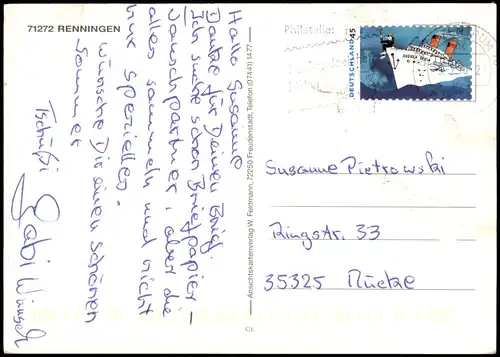 71272 RENNINGEN
Hallo Susanne
Danke für Deinen Brief.
Ich suche schon Briefpapier-
tauschpartner, aber die
alles sammeln und nicht
nur spezielles.
wünsche Dir einen schönen
Sommer
Tschüßi
Gabi
Ansichtskartenverlag W. Feldmann, 72250 Freudenstadt, Telefon (07441) 1477
CL
Philatelie:
DEUTSCHLAND 45
ANDREA DORIA
Susanne Pietrowski
Ringstr. 33
35325 Mücke